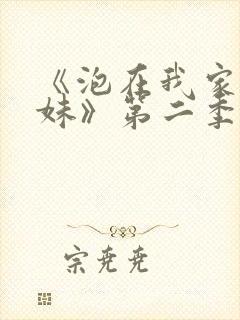 《泡在我家
妹》第二季
宗尭尭